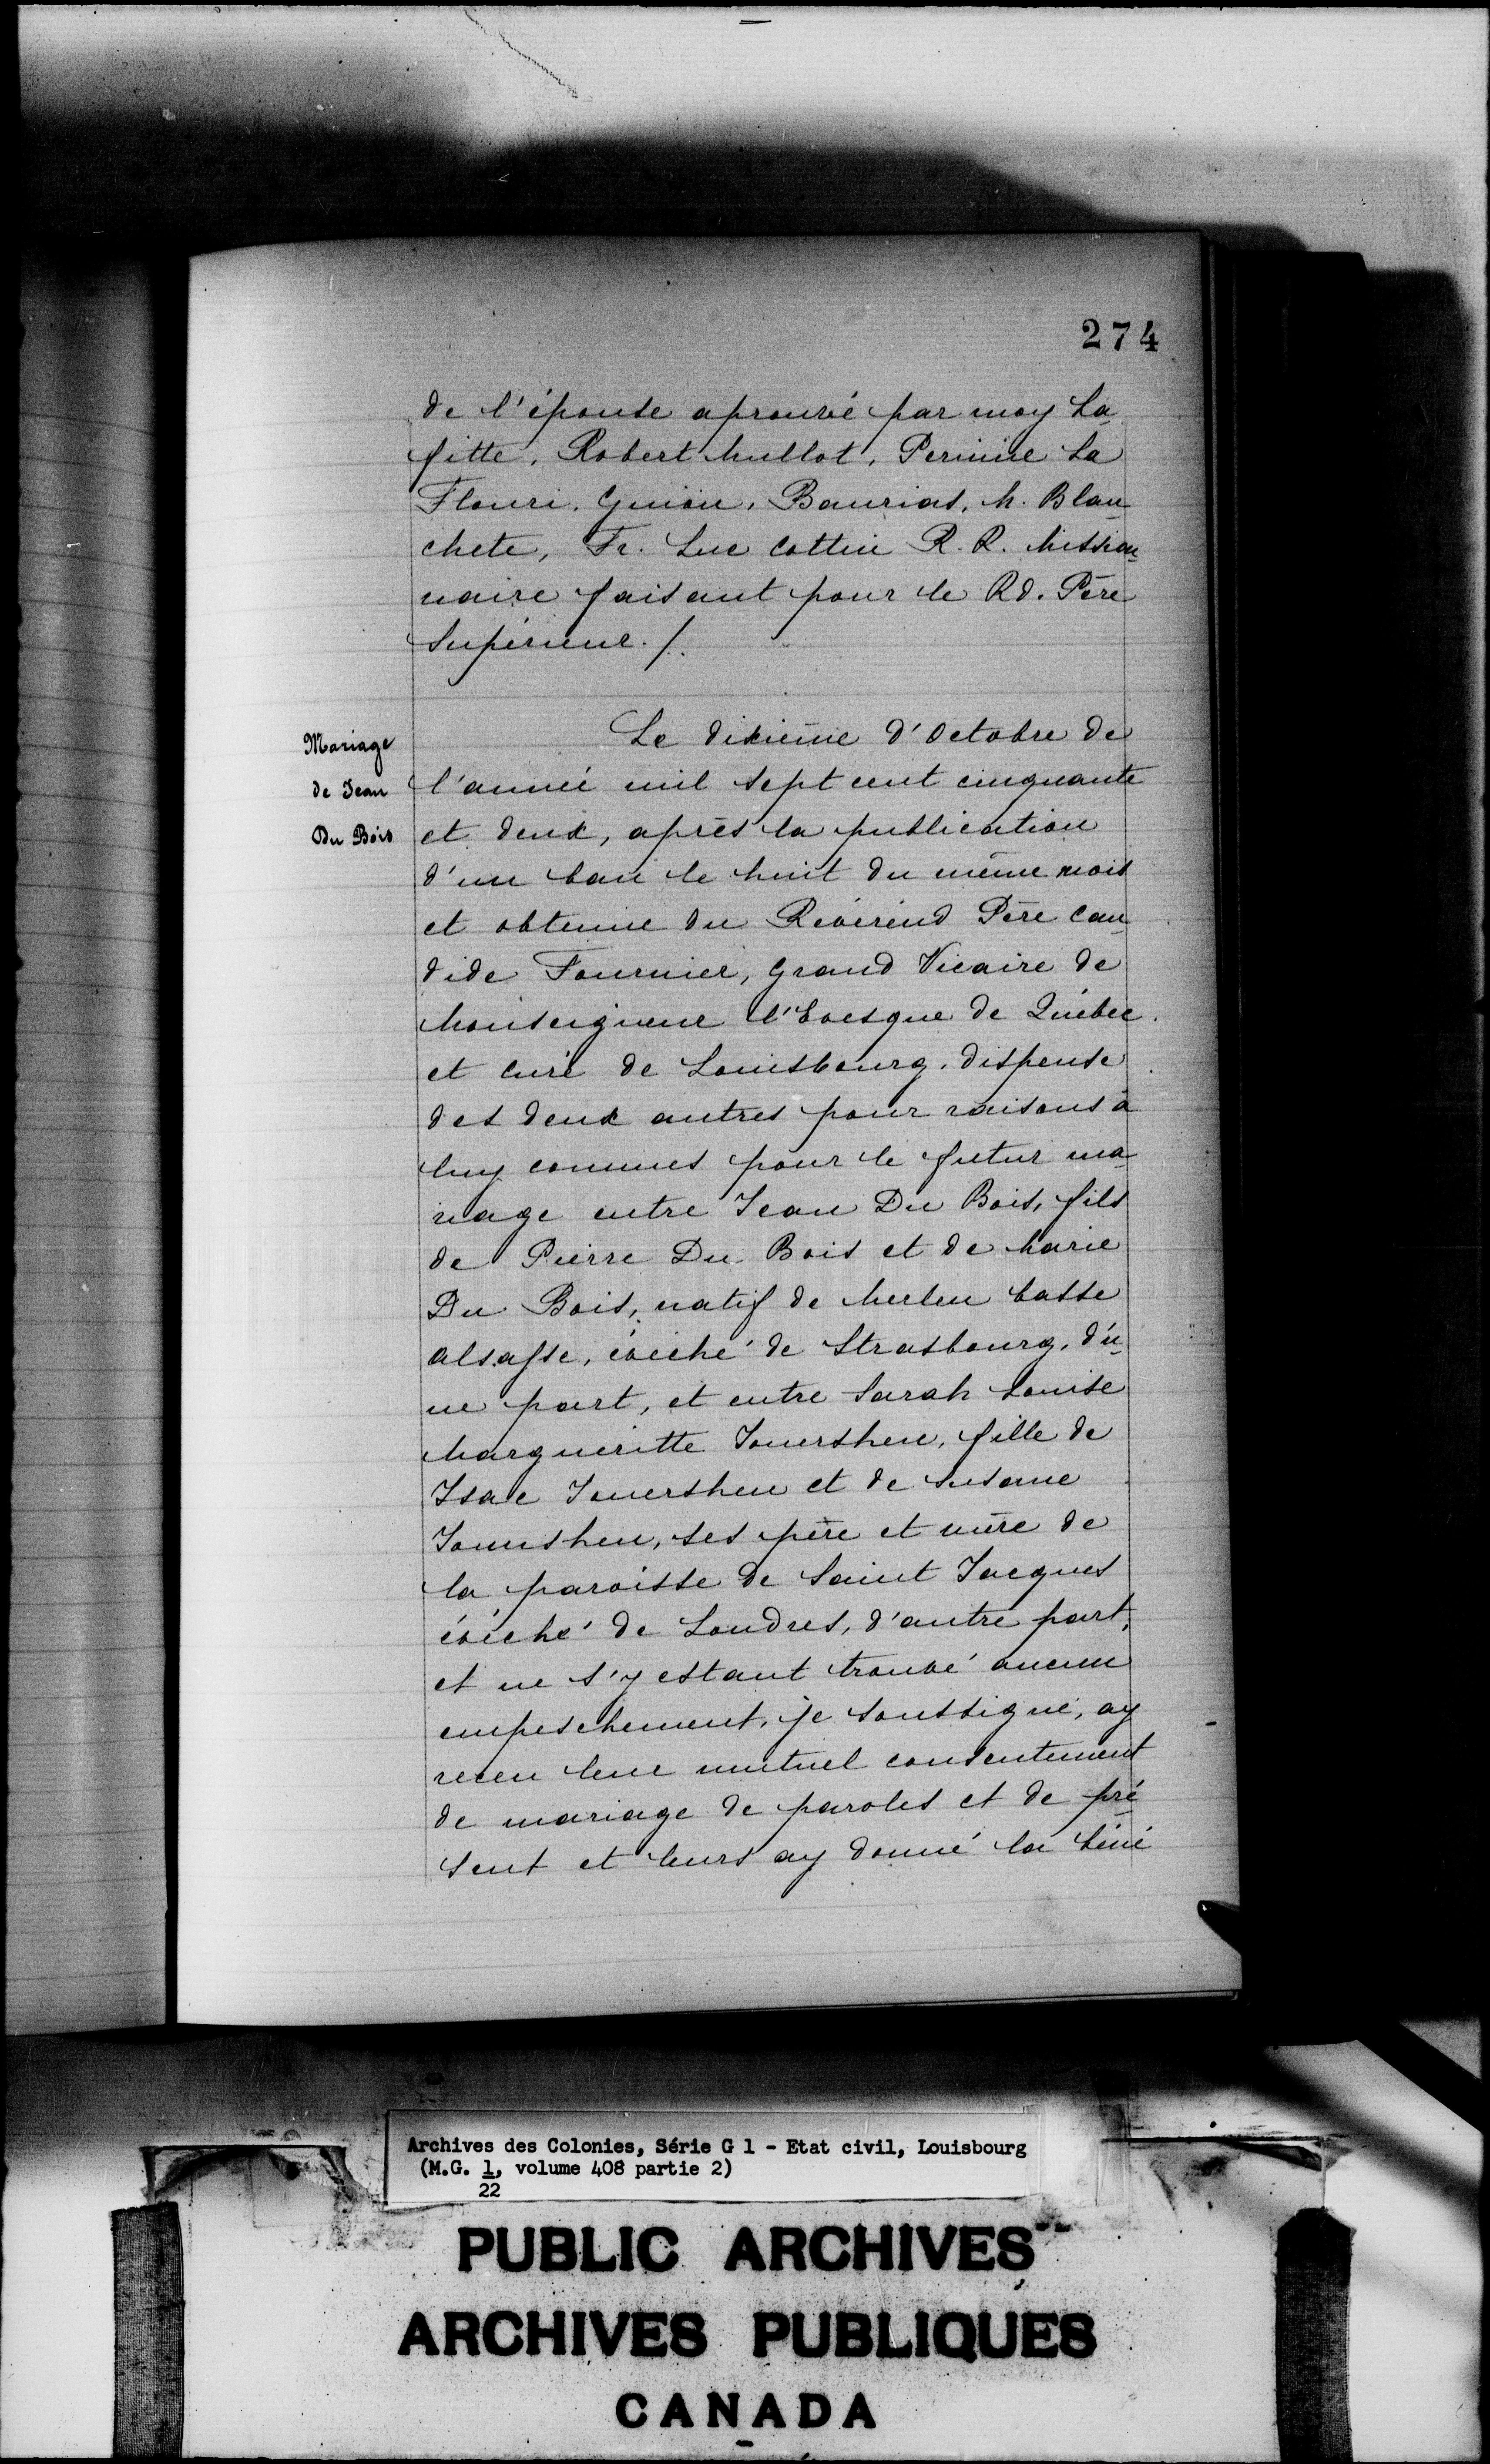 274
de l'épouse aprouvé par moy La-
fitte, Robert Mullot, Perinne La
Flouri, Guion, Baurias, M. Blan-
chete, Fr. Luc Cottin R. R. Mission-
naire faisant pour le Rd. Père
Supérieur./.
Mariage
de Jean
Du Bois
Le dixième d'Octobre de
l'année mil sept cent cinquante
et deux, après la publication
d'un ban le huit du même mois
et obtenue du Révérend Père Can-
dide Fournier, Grand Vicaire de
Monseigneur l'Evesque de Québec
et curé de Louisbourg, dispense
des deux autres pour raisons à
luy connues pour le futur ma-
riage entre Jean Du Bois, fils
de Pierre Du Bois et de Marie
Du Bois, natif de Merlen basse
alsasse, évêché de Strasbourg, d'u-
ne part, et entre Sarah Louise
Margueritte Jouershen, fille de
Isac Jouershen et de Susanne
Jouushen, ses père et mère de
la paroisse de Saint Jacques
évêché de Londres, d'autre part,
et ne s'y estant trouvé aucun
empeschement, je soussigné, ay
receu leur mutuel consentement
de mariage de paroles et de pré
sent et leurs ay donné la béné
Archives des Colonies, Série G 1 - Etat civil, Louisbourg
(M.G. 1, volume 408 partie 2)
22
PUBLIC ARCHIVES
ARCHIVES PUBLIQUES
CANADA